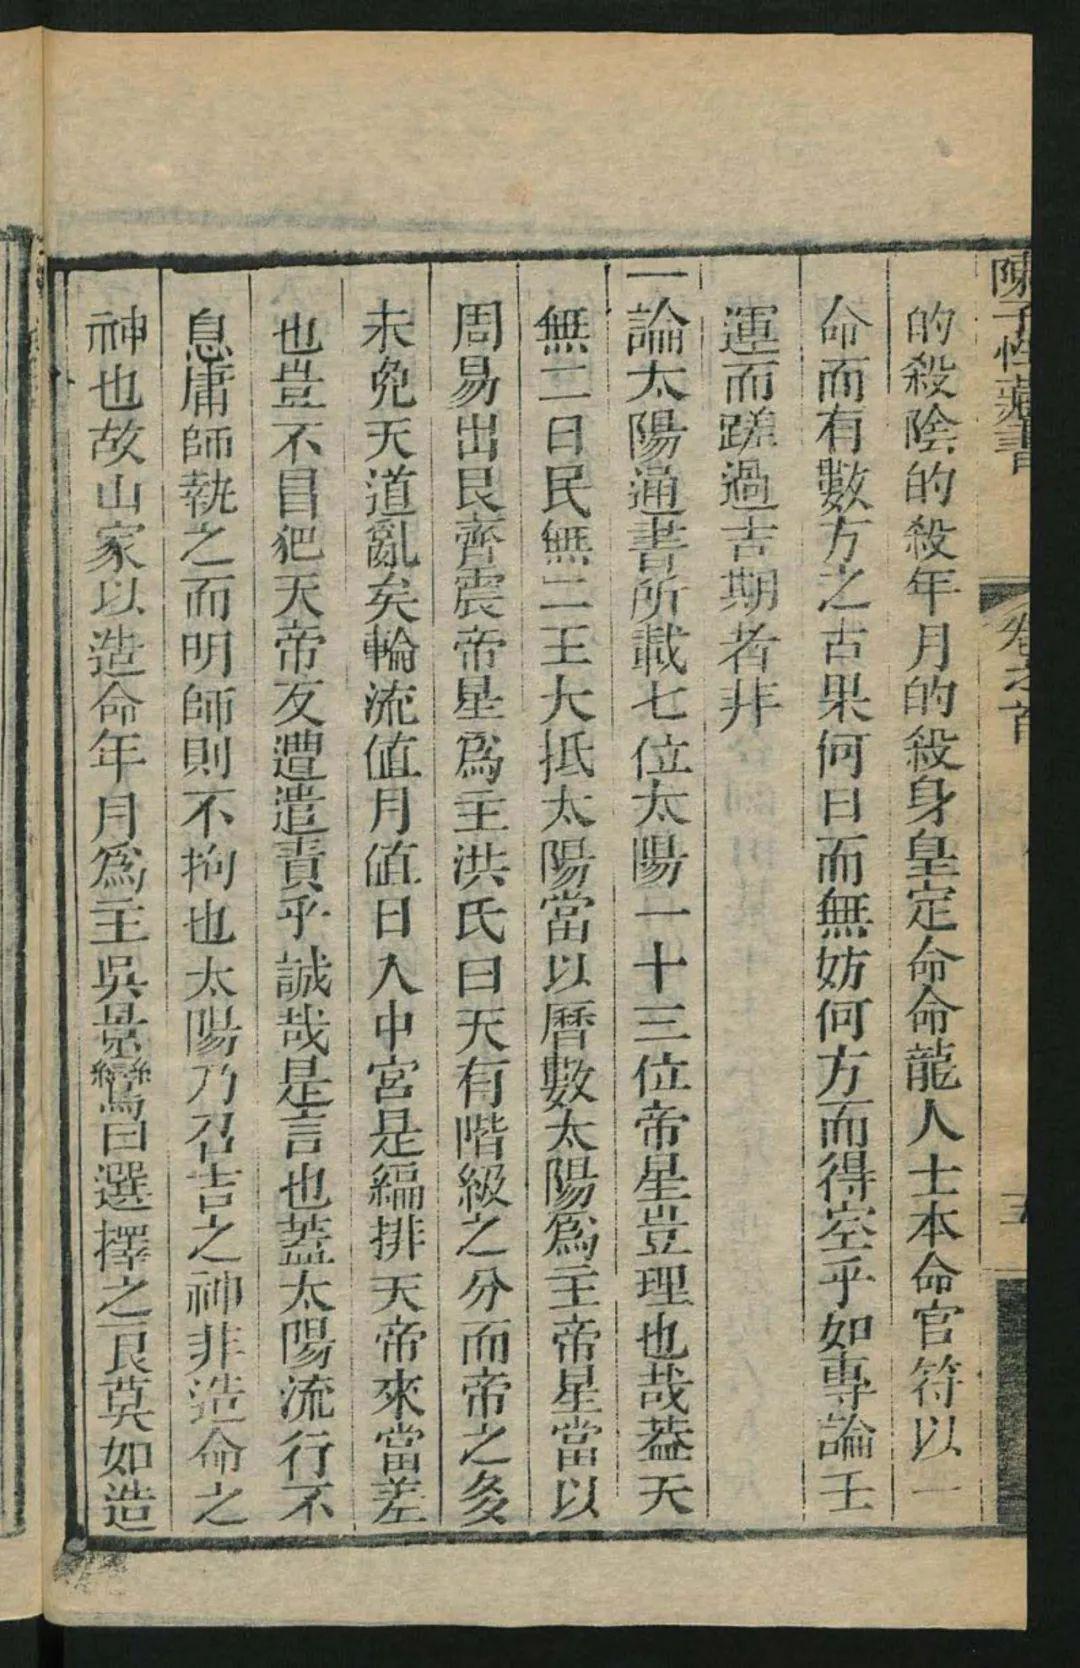 陳子性藏書
卷之首
五
的殺陰的殺年月的殺身皇定命命龍人士本命官符以一
命而有數方之古果何日而無妨何方而得空乎如專論王
運而蹉過吉期者非
一論太陽通書所載七位太陽一十三位帝星豈理也哉葢天
無二日民無二王大抵太陽當以曆數太陽爲主帝星當以
周易出艮齊震帝星爲主洪氏曰天有階級之分而帝之多
未免天道亂矣輪流值月值日入中宮是編排天帝來當差
也豈不冒犯天帝友遭遣責乎誠哉是言也葢太陽流行不
息庸師執之而明師則不拘也太陽乃召吉之神非造命之
神也故山家以造命年月爲主吳景鸞曰選擇之艮莫如造